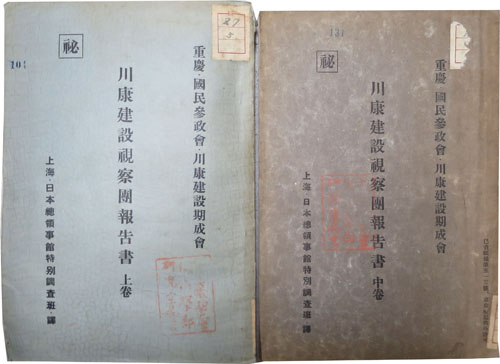 重慶・國民參政會・川康建設期成會
川康建設視察團報告書 上卷
上海・日本總領事館特別調査班・譯
祕
101
27
重慶・國民參政會・川康建設期成會
川康建設視察團報告書 中卷
上海・日本總領事館特別調査班・譯
祕